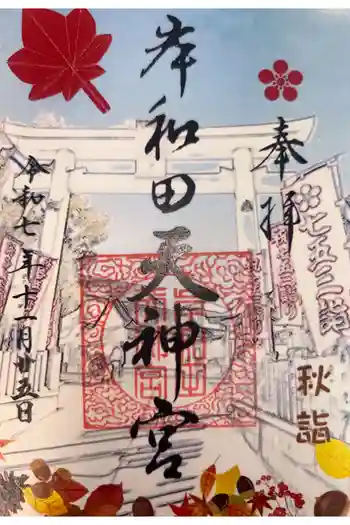 奉拝
七五三詣
秋詣
岸和田天神宮
令和七年十一月廿五日